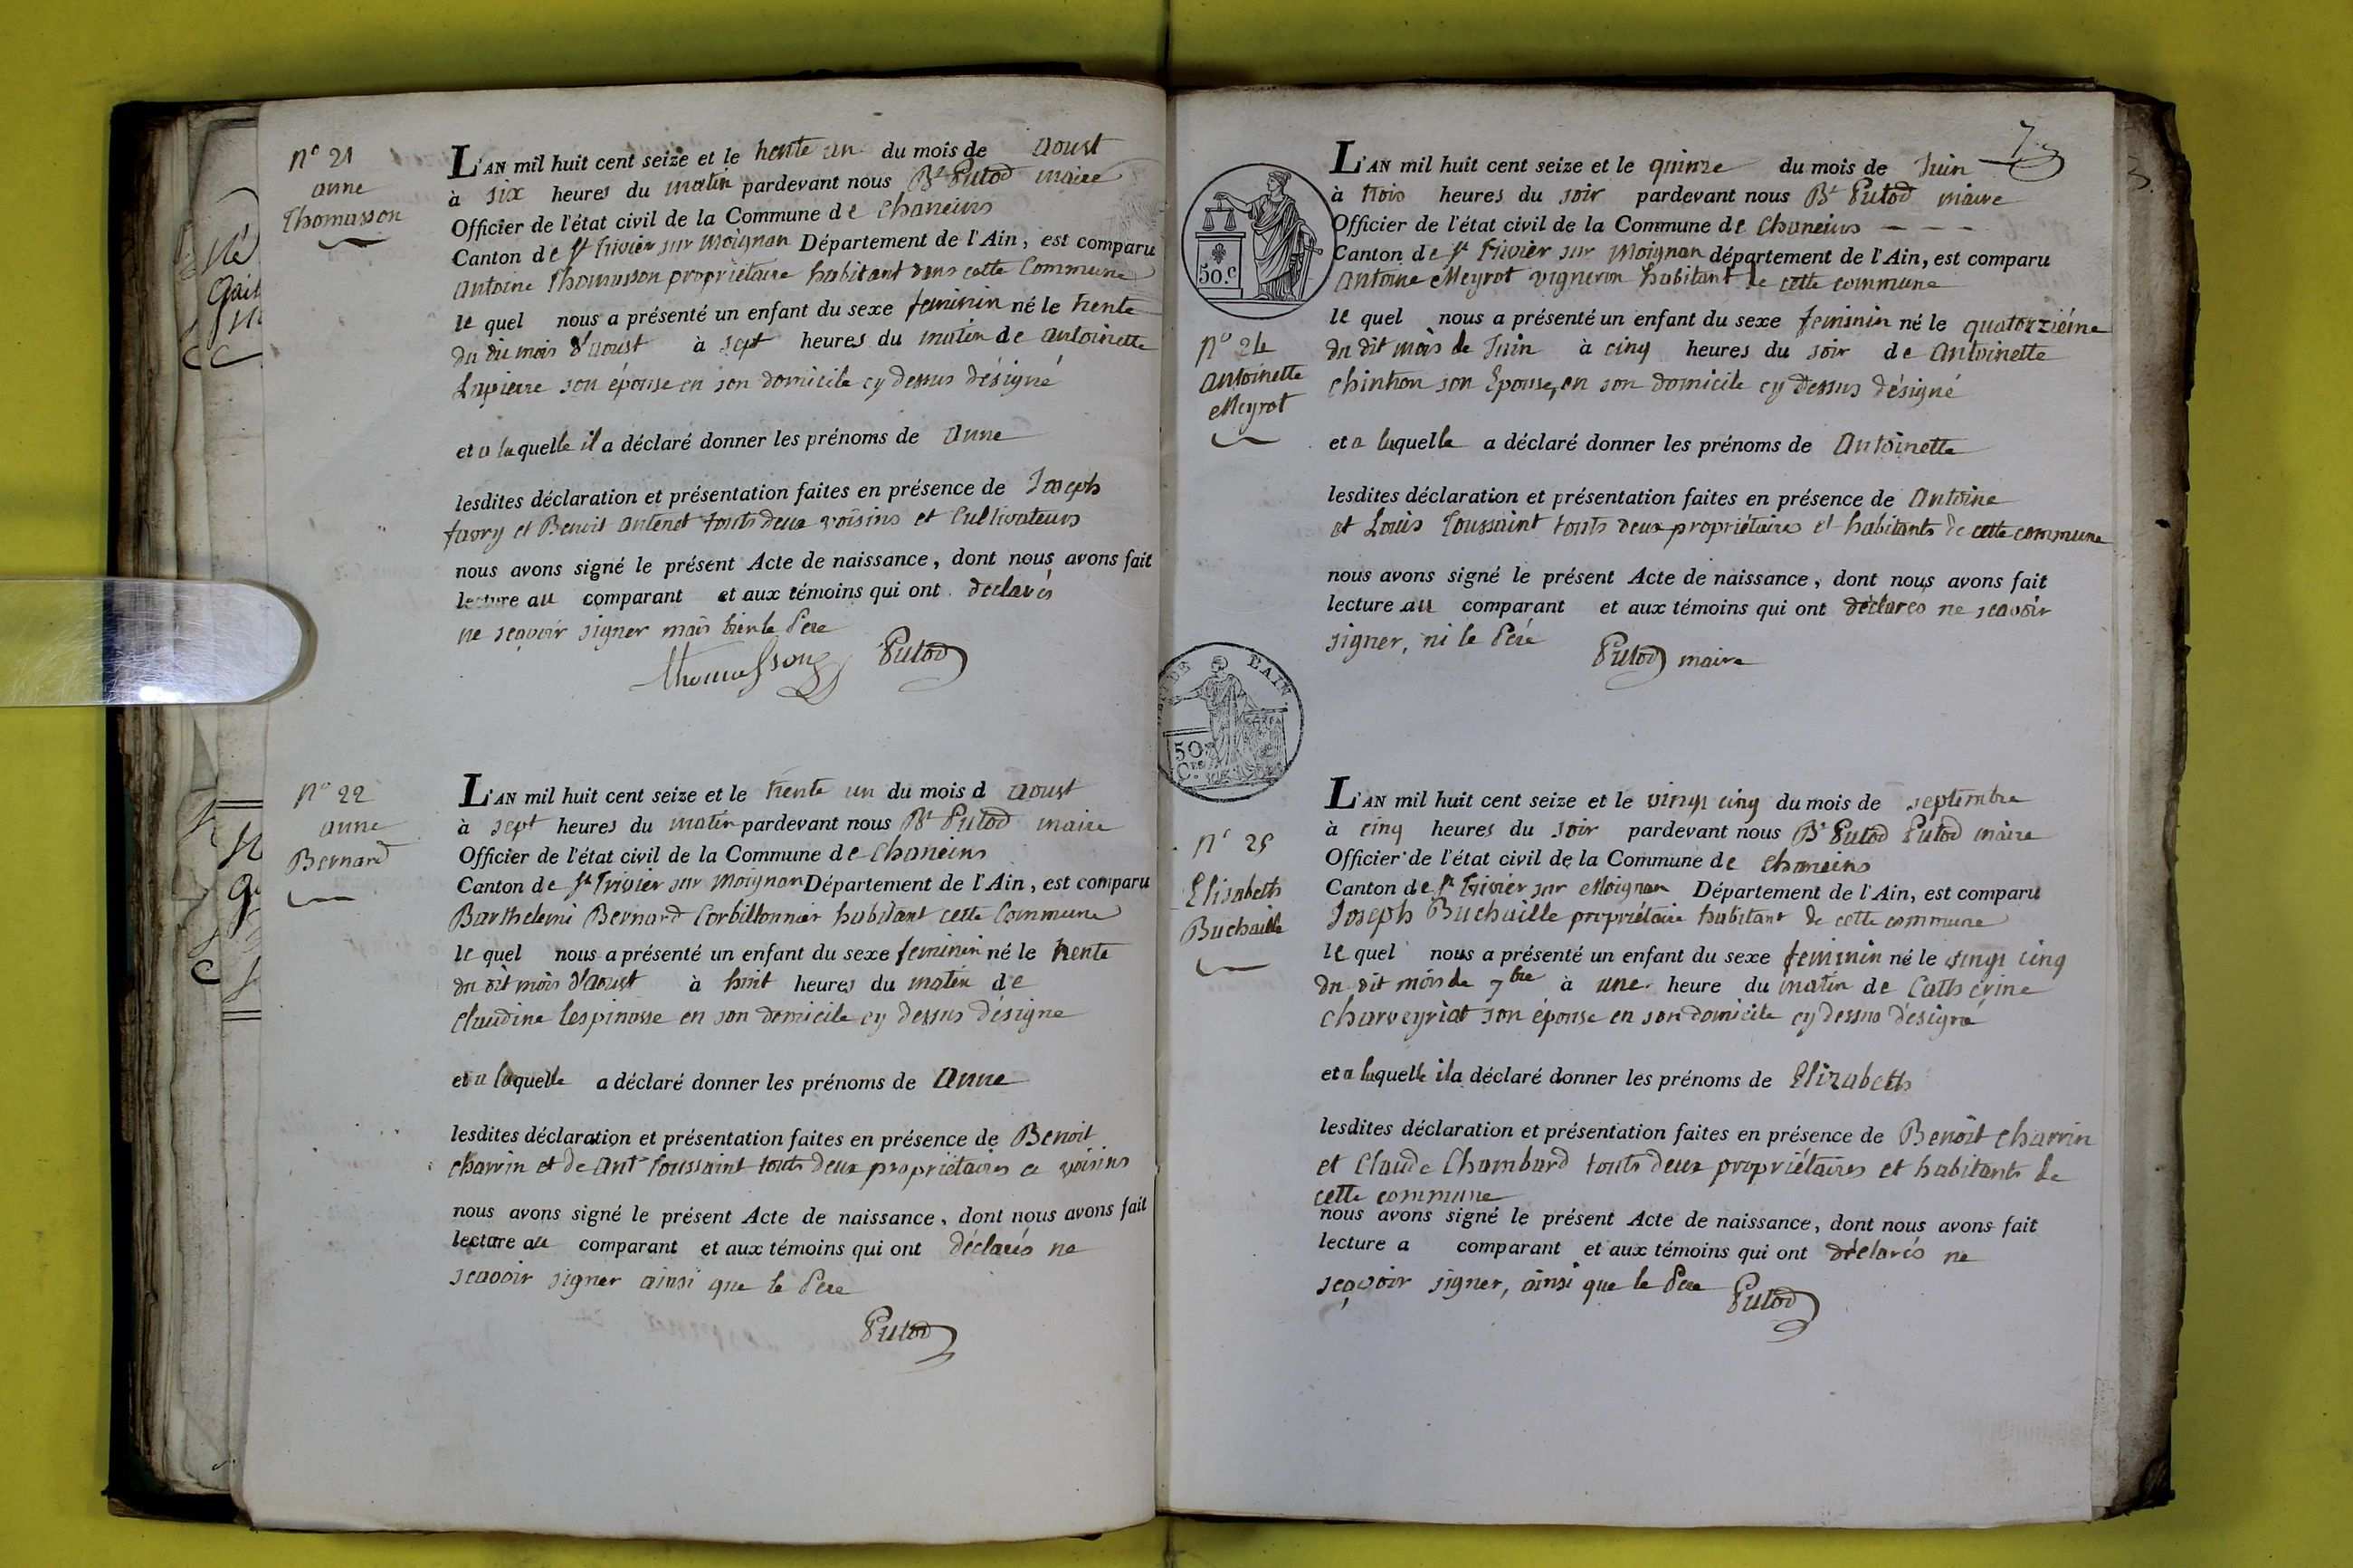 n° 21
anne
Thomasson
L'AN mil huit cent seize et le trente un du mois de aoust
à six heures du matin pardevant nous Bt Putod maire
Officier de l'état civil de la Commune de chaneins
Canton de St Trivier sur Moignan Département de l'Ain, est comparu
antoine Thomasson propriétaire habitant dans cette Commune
le quel nous a présenté un enfant du sexe feminin né le trente
du dit mois d'aoust à sept heures du matin de antoinette
Lapierre son épouse en son domicile cy dessus désigné
et a laquelle il a déclaré donner les prénoms de anne
lesdites déclaration et présentation faites en présence de Joseph
favry et Benoit antenet touts deux voisins et Cultivateurs
nous avons signé le présent Acte de naissance, dont nous avons fait
lecture au comparant et aux témoins qui ont declarés
ne sçavoir signer mais bien le Pere
Thomasson Putod
n° 22
anne
Bernard
L'AN mil huit cent seize et le trente un du mois d aoust
à sept heures du matin pardevant nous Bt Putod maire
Officier de l'état civil de la Commune de Chaneins
Canton de St Trivier sur Moignan Département de l'Ain, est comparu
Barthelemi Bernard Corbillonnier habitant cette Commune
le quel nous a présenté un enfant du sexe feminin né le trente
du dit mois d'aoust à huit heures du matin de
claudine lespinasse en son domicile cy dessus désigne
et a laquelle a déclaré donner les prénoms de anne
lesdites déclaration et présentation faites en présence de Benoit
charrin et de ant Toussaint touts deux propriétaires et voisins
nous avons signé le présent Acte de naissance, dont nous avons fait
lecture au comparant et aux témoins qui ont déclarés ne
scavoir signer ainsi que le Pere
Putod
7
50.c
n° 24
antoinette
Meyrot
L'AN mil huit cent seize et le quinze du mois de Juin
à trois heures du soir pardevant nous Bt Putod maire
Officier de l'état civil de la Commune de Chaneins - - -
Canton de St Trivier sur Moignan département de l'Ain, est comparu
antoine Meyrot vigneron habitant de cette commune
le quel nous a présenté un enfant du sexe feminin né le quatorzième
du dit mois de Juin à cinq heures du soir de antoinette
chintron son Epouse, en son domicile cy dessus désigné
et a laquelle a déclaré donner les prénoms de antoinette
lesdites déclaration et présentation faites en présence de antoine
et Louis Toussaint touts deux propriétaires et habitants de cette commune
nous avons signé le présent Acte de naissance, dont nous avons fait
lecture au comparant et aux témoins qui ont déclarés ne scavoir
signer, ni le Peré
Putod maire
L'AIN
50
Ces
n° 25
Elisabeth
Buchaille
L'AN mil huit cent seize et le vingt cinq du mois de septembre
à cinq heures du soir pardevant nous Bt Putod Putod maire
Officier de l'état civil de la Commune de chaneins
Canton de St Trivier sur Moignan Département de l'Ain, est comparu
Joseph Buchaille propriétaire habitant de cette commune
le quel nous a présenté un enfant du sexe feminin né le vingt cinq
du dit mois de 7bre à une heure du matin de Catherine
Charveyriat son épouse en son domicile cy dessus désigné
et a laquelle il a déclaré donner les prénoms de Elizabeth
lesdites déclaration et présentation faites en présence de Benoit charrin
et Claude Chambard touts deux propriétaires et habitants de
cette commune
nous avons signé le présent Acte de naissance, dont nous avons fait
lecture a comparant et aux témoins qui ont déclarés ne
sçavoir signer, ainsi que le Pere
Putod